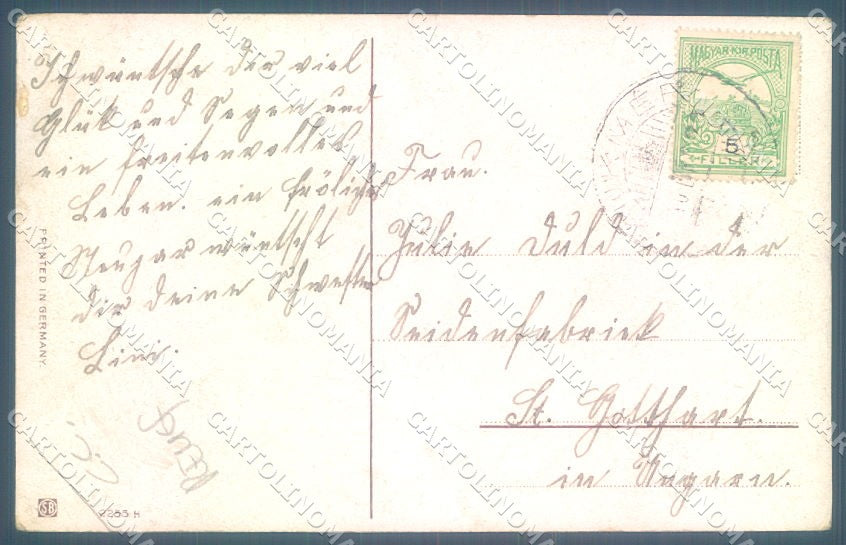 Ich wüntsche dir viel
Glük und Segen und
ein freitenvolles
Leben. ein fröliges
Neugar wüntscht
dir deine Schwester
Lini.
PRINTED IN GERMANY.
SB
2253 H
MAGYAR KIR. POSTA
5
FILLÉR
Frau.
Julie Duld in der
Seidenfabriek
St. Gotthart.
in Ungarn.
CARTOLINOMANIA